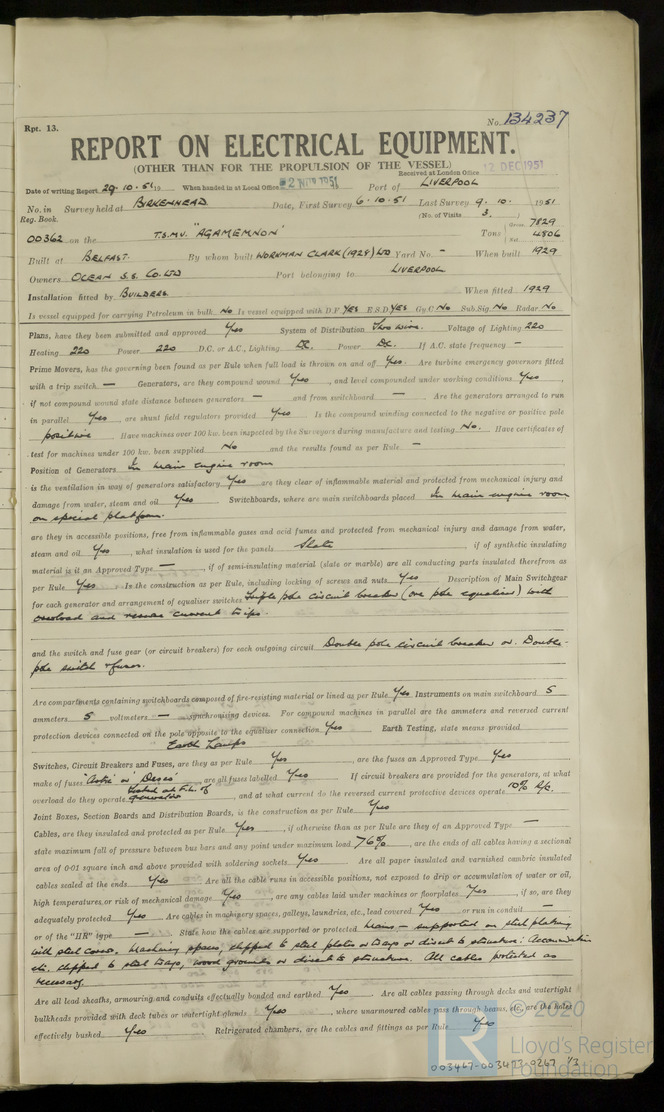 Rpt. 13.
No. 134237
REPORT ON ELECTRICAL EQUIPMENT.
(OTHER THAN FOR THE PROPULSION OF THE VESSEL)
Received at London Office 12 DEC 1951
Date of writing Report 29.10.51 19 When handed in at Local Office 2 NOV 1951 Port of LIVERPOOL
No. in Survey held at BIRKENHEAD Date, First Survey 6.10.51 Last Survey 9.10. 1951
Reg. Book. (No. of Visits 3.)
00362 on the T.S.M.V. "AGAMEMNON" Tons Gross 7829 Net 4806
Built at BELFAST. By whom built WORKMAN CLARK (1928) LTD Yard No. — When built 1929
Owners OCEAN S.S. CO. LTD Port belonging to LIVERPOOL
Installation fitted by BUILDERS. When fitted 1929
Is vessel equipped for carrying Petroleum in bulk NO Is vessel equipped with D.F. YES E.S.D. YES Gy.C. NO Sub.Sig. NO Radar NO
Plans, have they been submitted and approved Yes System of Distribution Two wire. Voltage of Lighting 220
Heating 220 Power 220 D.C. or A.C., Lighting DC. Power DC. If A.C. state frequency —
Prime Movers, has the governing been found as per Rule when full load is thrown on and off Yes. Are turbine emergency governors fitted
with a trip switch — Generators, are they compound wound Yes, and level compounded under working conditions Yes,
if not compound wound state distance between generators — and from switchboard — Are the generators arranged to run
in parallel Yes, are shunt field regulators provided Yes Is the compound winding connected to the negative or positive pole
positive Have machines over 100 kw. been inspected by the Surveyors during manufacture and testing No. Have certificates of
test for machines under 100 kw. been supplied No and the results found as per Rule —
Position of Generators In main engine room
is the ventilation in way of generators satisfactory Yes are they clear of inflammable material and protected from mechanical injury and
damage from water, steam and oil Yes Switchboards, where are main switchboards placed In main engine room
on special platform.
are they in accessible positions, free from inflammable gases and acid fumes and protected from mechanical injury and damage from water,
steam and oil Yes, what insulation is used for the panels Slate, if of synthetic insulating
material is it an Approved Type —, if of semi-insulating material (slate or marble) are all conducting parts insulated therefrom as
per Rule Yes Is the construction as per Rule, including locking of screws and nuts Yes Description of Main Switchgear
for each generator and arrangement of equaliser switches Triple pole circuit breaker (one pole equaliser) with
overload and reverse current trips.
and the switch and fuse gear (or circuit breakers) for each outgoing circuit Double pole circuit breaker or Double-
pole switch & fuses.
Are compartments containing switchboards composed of fire-resisting material or lined as per Rule Yes Instruments on main switchboard 5
ammeters 5 voltmeters — synchronising devices. For compound machines in parallel are the ammeters and reversed current
protection devices connected on the pole opposite to the equaliser connection Yes Earth Testing, state means provided
Earth Lamps
Switches, Circuit Breakers and Fuses, are they as per Rule Yes, are the fuses an Approved Type Yes
make of fuses are all fuses labelled Yes If circuit breakers are provided for the generators, at what
overload do they operate Tested at F.L. of generator, and at what current do the reversed current protective devices operate 10% R/c.
Joint Boxes, Section Boards and Distribution Boards, is the construction as per Rule Yes
Cables, are they insulated and protected as per Rule Yes, if otherwise than as per Rule are they of an Approved Type —
state maximum fall of pressure between bus bars and any point under maximum load >6%, are the ends of all cables having a sectional
area of 0·01 square inch and above provided with soldering sockets Yes Are all paper insulated and varnished cambric insulated
cables sealed at the ends Yes Are all the cable runs in accessible positions, not exposed to drip or accumulation of water or oil,
high temperatures, or risk of mechanical damage Yes, are any cables laid under machines or floorplates Yes, if so, are they
adequately protected Yes Are cables in machinery spaces, galleys, laundries, etc., lead covered Yes or run in conduit —
or of the "HR" type — State how the cables are supported or protected Mains - supported on steel plating
with steel covers. Machinery spaces, clipped to steel plates or trays or direct to structure. Accommodation
etc. clipped to steel trays, wood grounds or direct to structure. All cables protected as
necessary.
Are all lead sheaths, armouring and conduits effectually bonded and earthed Yes Are all cables passing through decks and watertight
bulkheads provided with deck tubes or watertight glands Yes, where unarmoured cables pass through beams, etc., are the holes
effectively bushed Yes Refrigerated chambers, are the cables and fittings as per Rule Yes
© 2020
LR
Lloyd's Register
Foundation
003467-003473-0267 1/3